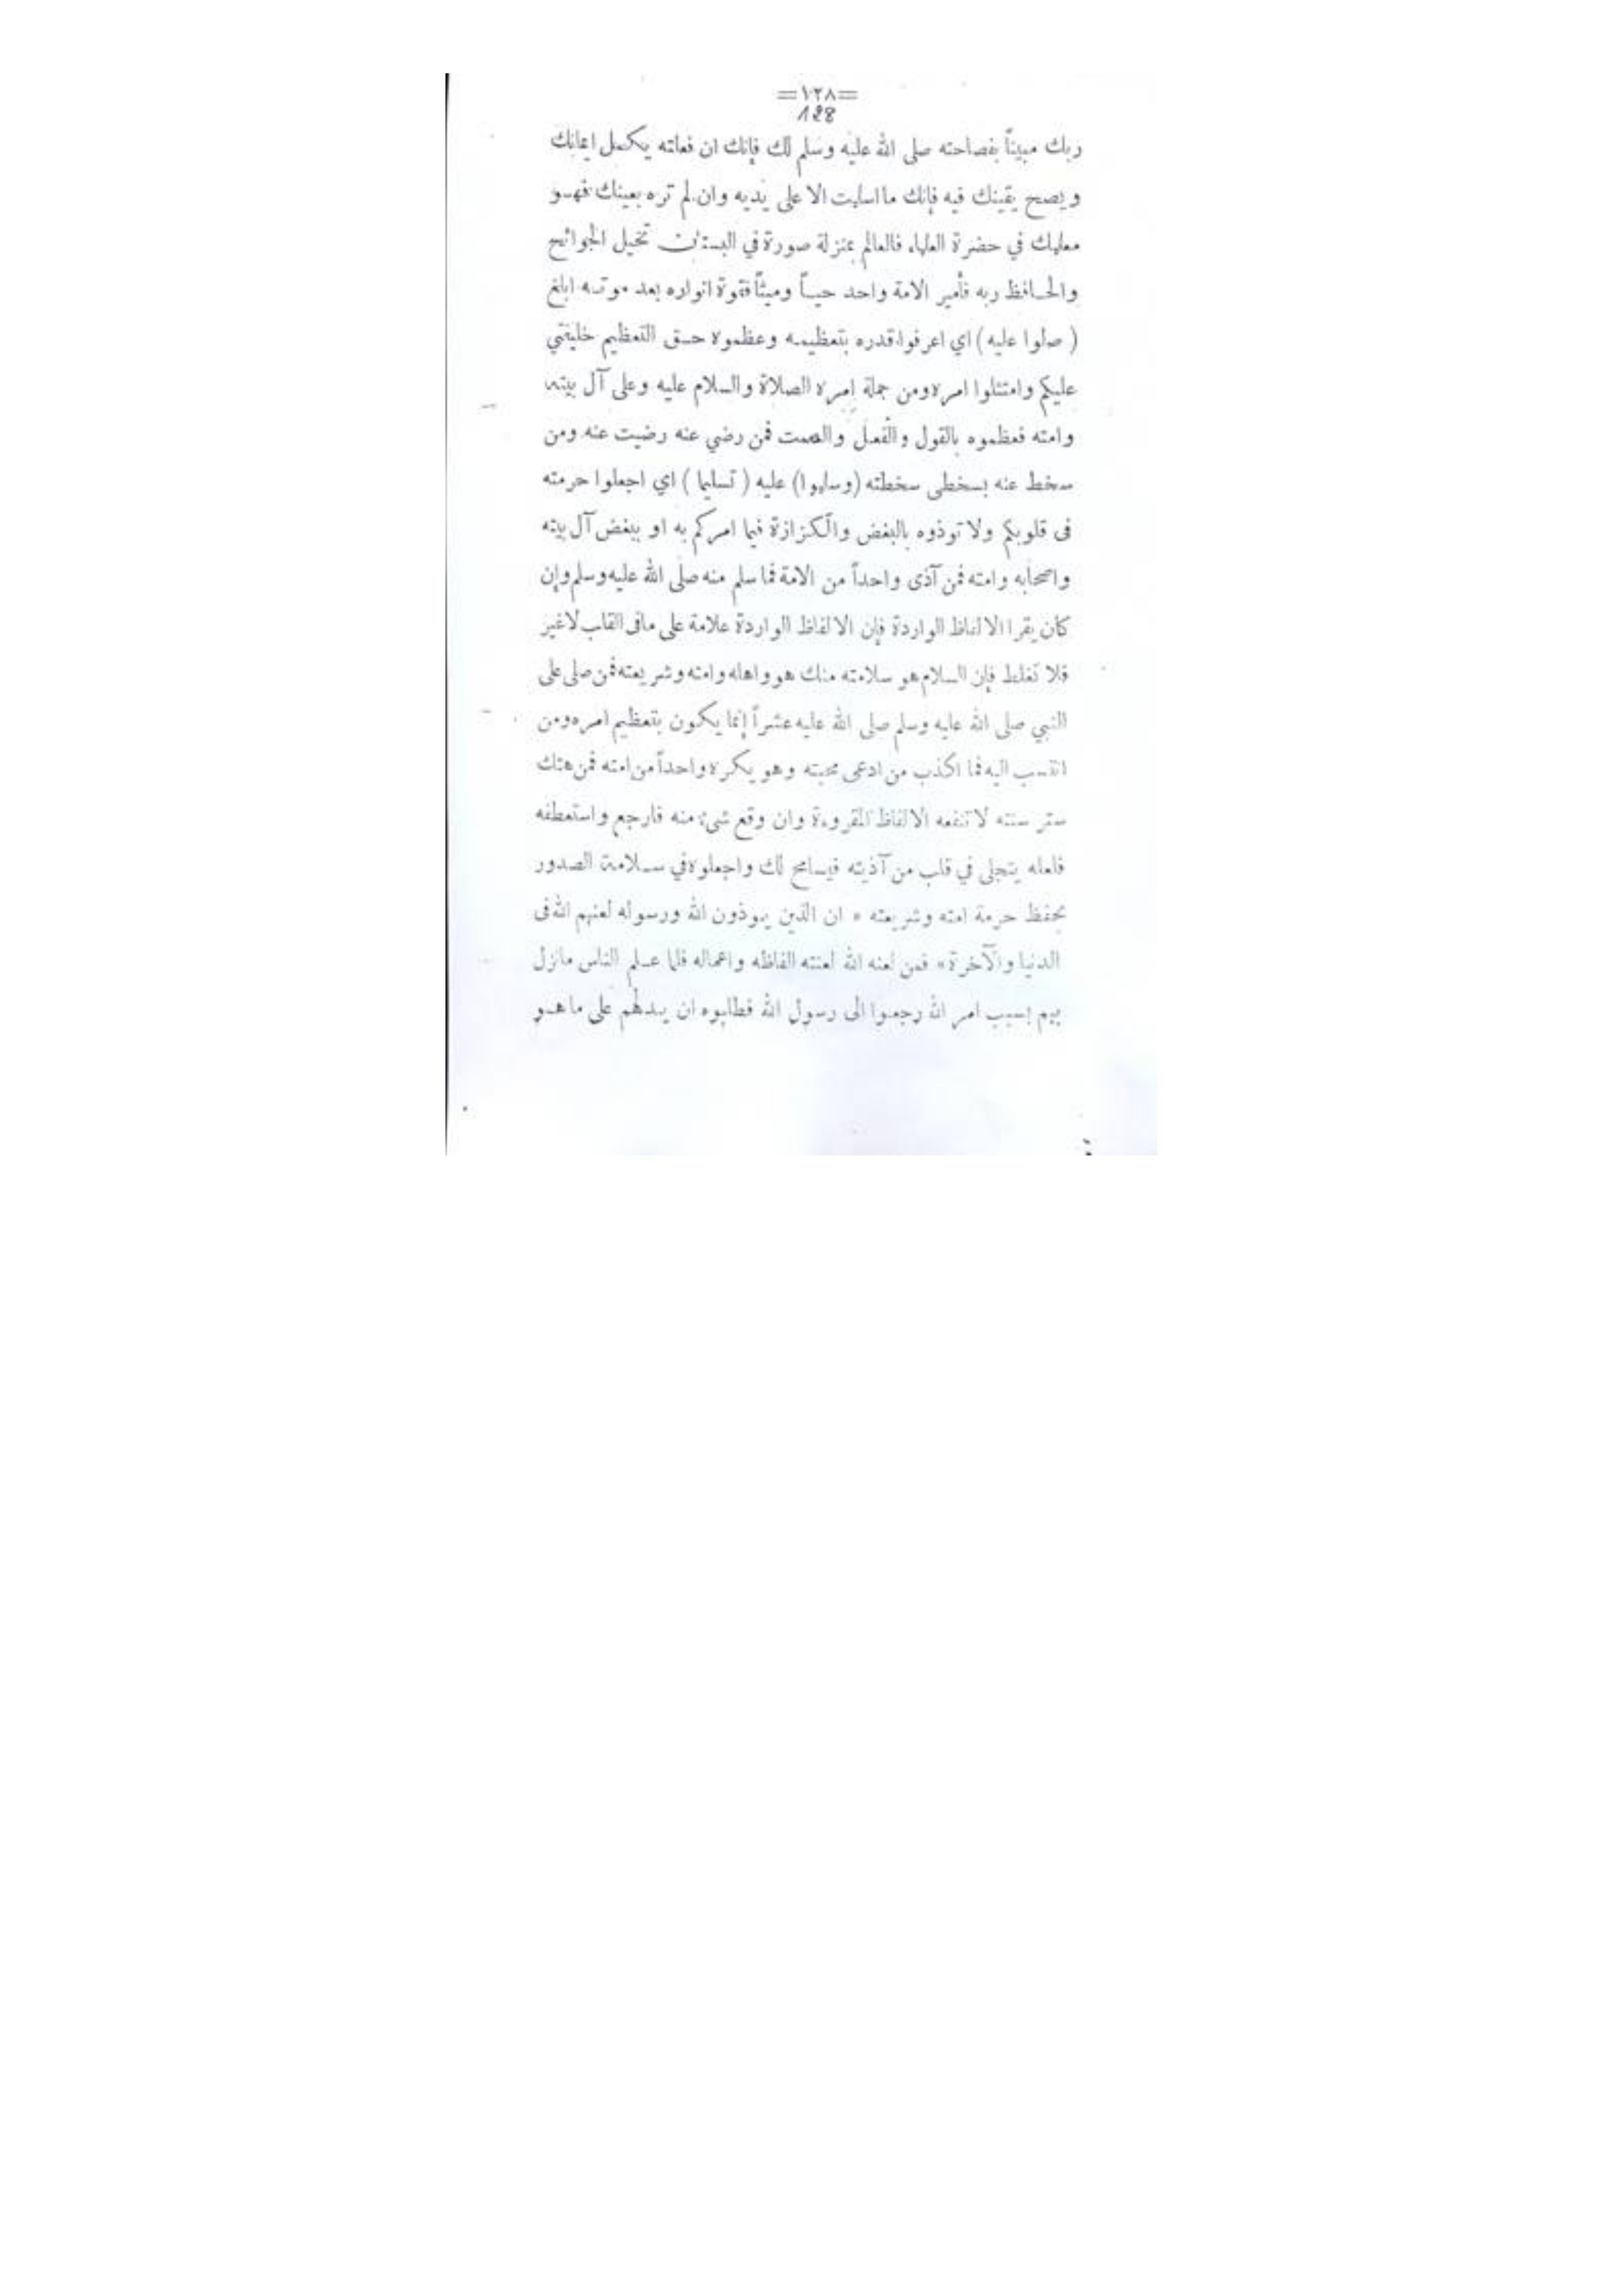 =١٢٨=
128
ربك مبيناً بفصاحته صلى الله عليه وسلم لك فإنك ان فعلته يكمل ايمانك
ويصح يقينك فيه فإنك ما اسلمت الا على يديه وان لم تره بعينك فهو
معلمك في حضرة العلماء فالعالم بمنزلة صورة في البستان تخيل الجوائح
والحافظ ربه فأمير الامة واحد حياً وميتاً فقوة انواره بعد موته ابلغ
( صلوا عليه ) اي اعرفوا قدره بتعظيمه وعظموه حق التعظيم خليفتي
عليكم وامتثلوا امره ومن جملة امره الصلاة والسلام عليه وعلى آل بيته
وامته فعظموه بالقول والفعل والصمت فمن رضي عنه رضيت عنه ومن
سخط عنه بسخطى سخطته (وسلموا) عليه ( تسليما ) اي اجعلوا حرمته
فى قلوبكم ولا توذوه بالبغض والكزازة فيما امركم به او ببغض آل بيته
واصحابه وامته فمن آذى واحداً من الامة فما سلم منه صلى الله عليه وسلم وإن
كان يقرا الالفاظ الواردة فإن الالفاظ الواردة علامة على مافى القلب لاغير
فلا تغلط فإن السلام هو سلامته منك هو واهله وامته وشريعته فمن صلى على
النبي صلى الله عليه وسلم صلى الله عليه عشراً إنما يكون بتعظيم امره ومن
انتسب اليه فما اكذب من ادعى محبته وهو يكره واحداً من امته فمن هتك
ستر سنته لا تنفعه الالفاظ المقروءة وان وقع شيء منه فارجع واستعطفه
فلعله يتجلى في قلب من آذيته فيسامح لك واجعلوه في سلامة الصدور
بحفظ حرمة امته وشريعته « ان الذين يوذون الله ورسوله لعنهم الله فى
الدنيا والآخرة » فمن لعنه الله لعنته الفاظه واعماله فلما علم الناس مانزل
بهم بسبب امر الله رجعوا الى رسول الله فطالبوه ان يدلهم على ما هو